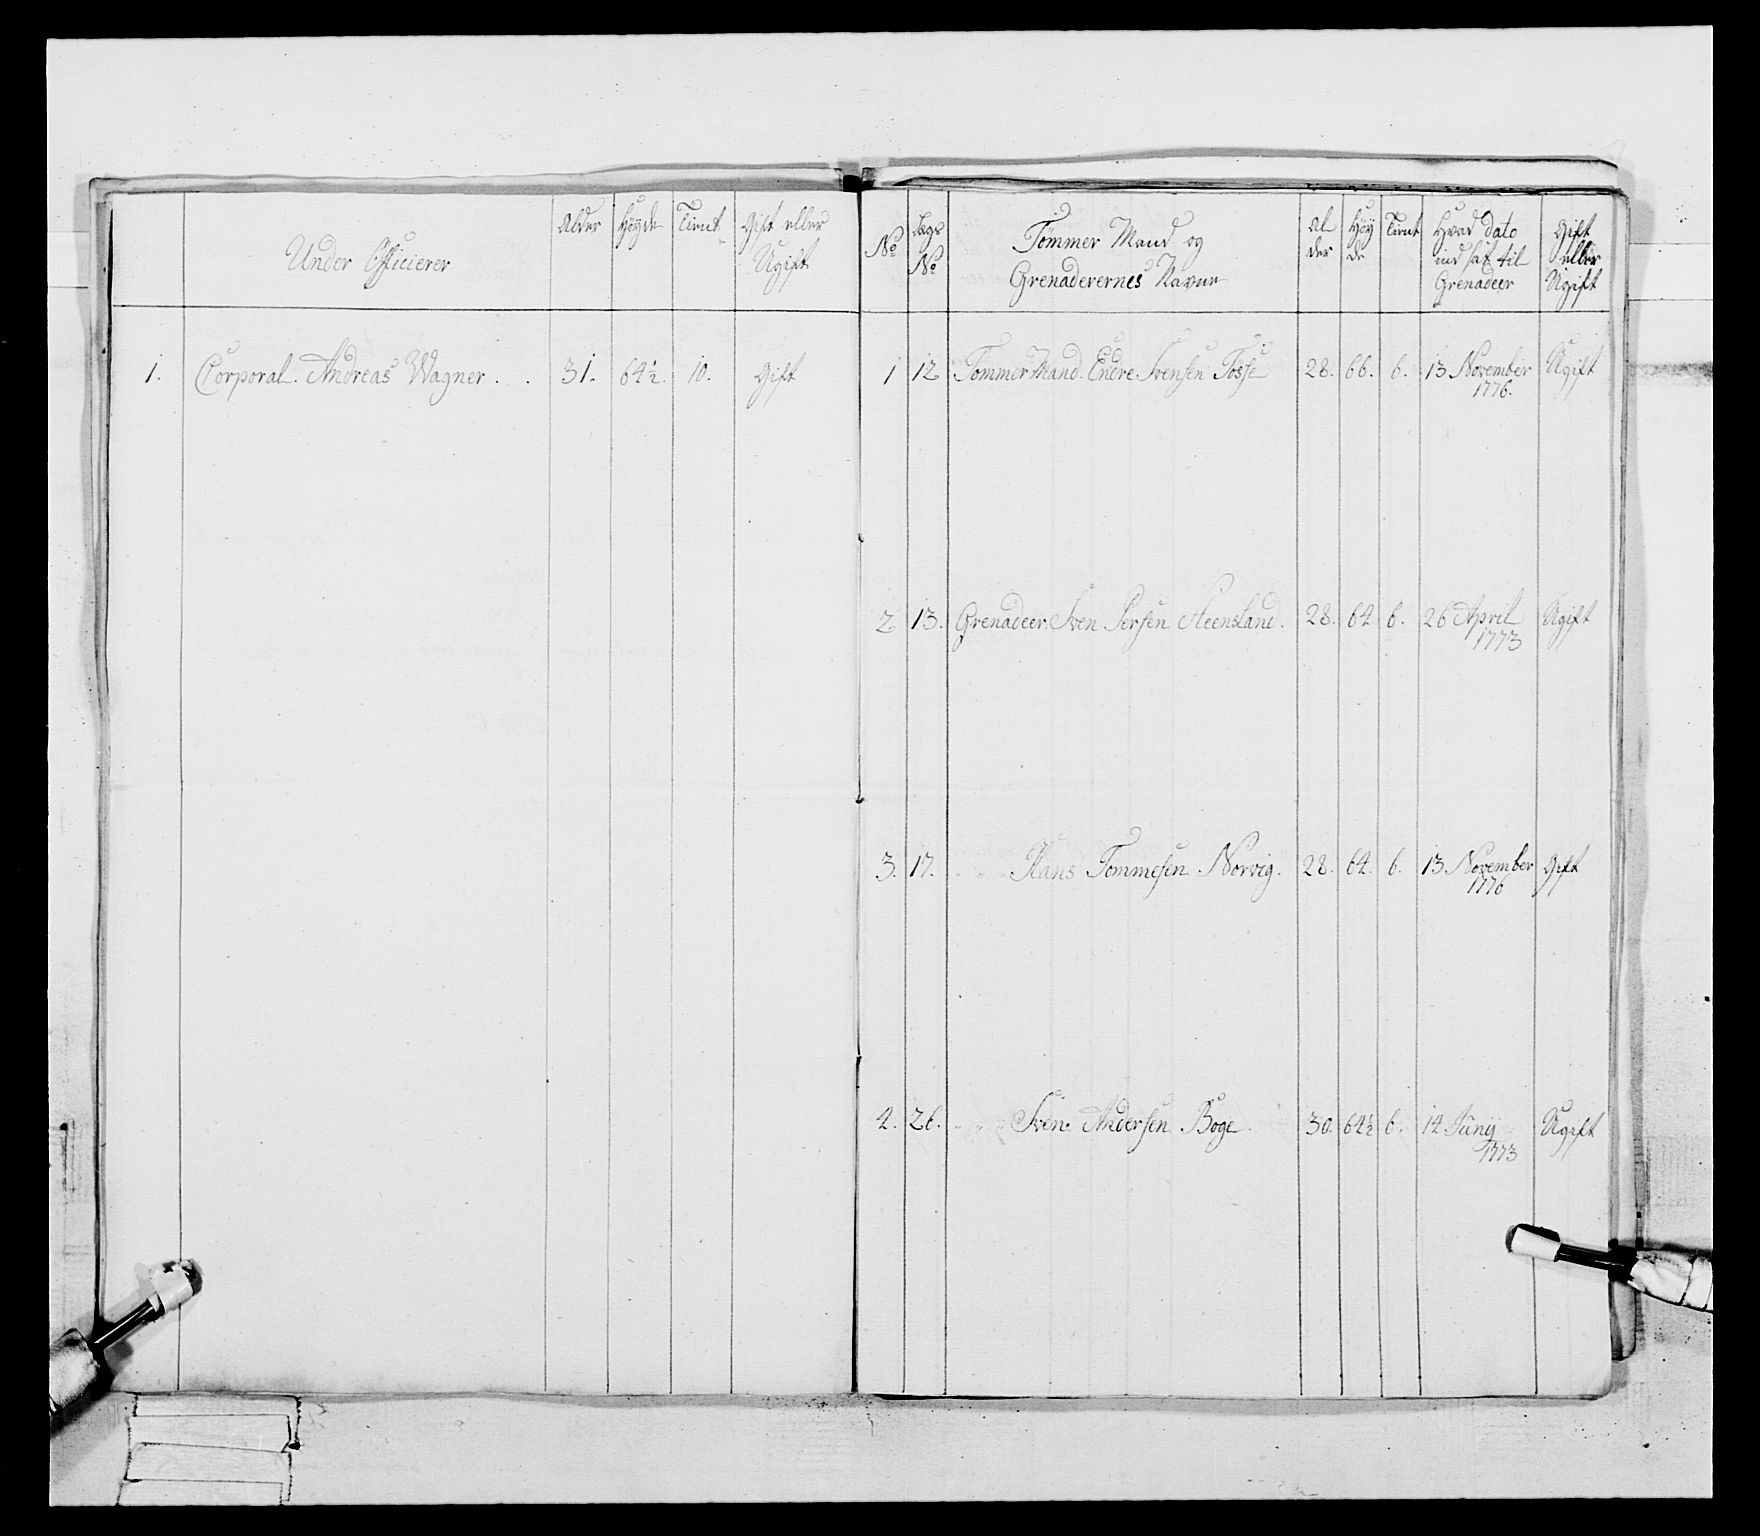 Under Officierer
Alder
Höyde
Tient
Gift eller
Ugift
1.
Corporal. Andreas Wagner . .
31.
64½.
10.
Gift
No
Lags
No
Tömmer Mand og
Grenaderernes Navne
Al
der
Höy
de
Tient
Hvad dato
ind sat til
Grenadeer
Gift
eller
Ugift
1 12 Tömmer Mand. Endre Svensen Fosse 28. 66. 6. 13 November Ugift
1776.
2 13. Grenadeer. Sven Persen Steensland. 28. 64 6. 26 April Ugift
1773
3. 17. " " " Hans Tommesen Norvig. 28. 64. 6. 13. November Gift
1776
4. 26. " " " Sven Andersen Böge. 30. 64½ 6. 14 Junij Ugift
1773